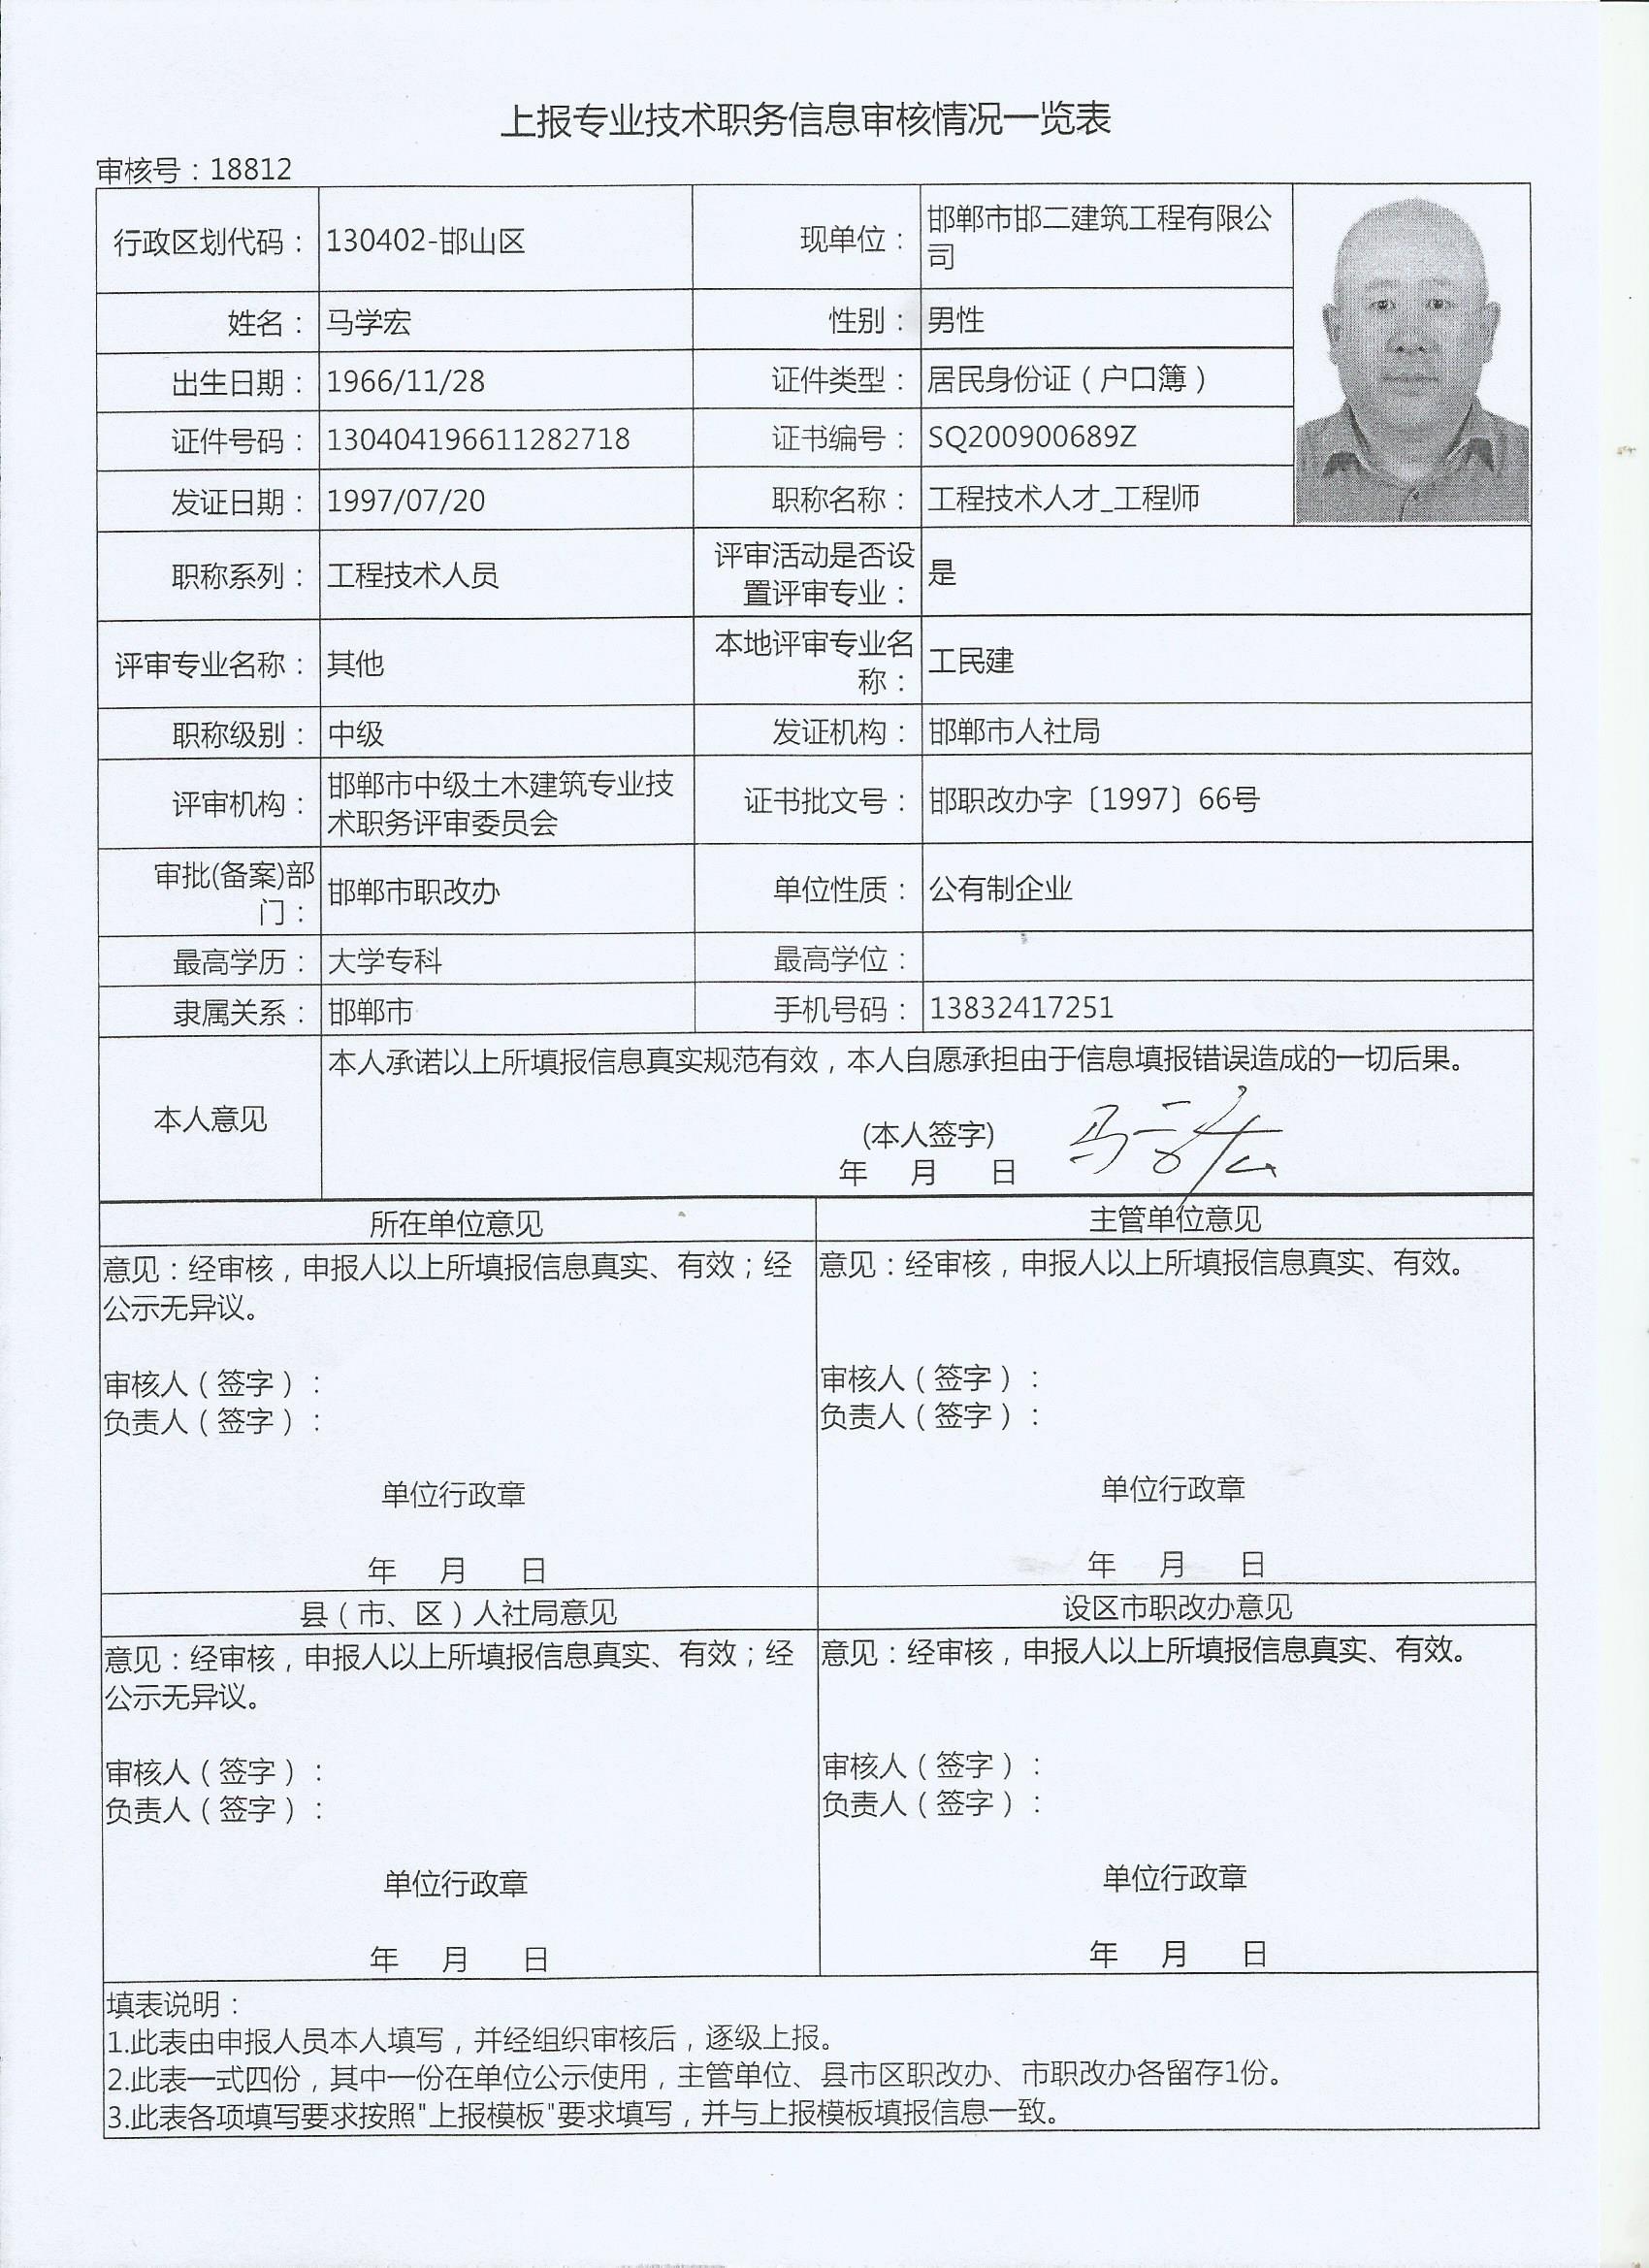 上报专业技术职务信息审核情况一览表
审核号：18812
行政区划代码： 130402-邯山区 现单位： 邯郸市邯二建筑工程有限公
司
姓名： 马学宏 性别： 男性
出生日期： 1966/11/28 证件类型： 居民身份证（户口簿）
证件号码： 130404196611282718 证书编号： SQ200900689Z
发证日期： 1997/07/20 职称名称： 工程技术人才_工程师
职称系列： 工程技术人员 评审活动是否设
置评审专业： 是
评审专业名称： 其他 本地评审专业名
称： 工民建
职称级别： 中级 发证机构： 邯郸市人社局
评审机构： 邯郸市中级土木建筑专业技
术职务评审委员会 证书批文号： 邯职改办字〔1997〕66号
审批(备案)部
门： 邯郸市职改办 单位性质： 公有制企业
最高学历： 大学专科 最高学位：
隶属关系： 邯郸市 手机号码： 13832417251
本人意见
本人承诺以上所填报信息真实规范有效，本人自愿承担由于信息填报错误造成的一切后果。
(本人签字) 马学宏
年 月 日
所在单位意见 主管单位意见
意见：经审核，申报人以上所填报信息真实、有效；经
公示无异议。
审核人（签字）：
负责人（签字）：
单位行政章
年 月 日
意见：经审核，申报人以上所填报信息真实、有效。
审核人（签字）：
负责人（签字）：
单位行政章
年 月 日
县（市、区）人社局意见 设区市职改办意见
意见：经审核，申报人以上所填报信息真实、有效；经
公示无异议。
审核人（签字）：
负责人（签字）：
单位行政章
年 月 日
意见：经审核，申报人以上所填报信息真实、有效。
审核人（签字）：
负责人（签字）：
单位行政章
年 月 日
填表说明：
1.此表由申报人员本人填写，并经组织审核后，逐级上报。
2.此表一式四份，其中一份在单位公示使用，主管单位、县市区职改办、市职改办各留存1份。
3.此表各项填写要求按照"上报模板"要求填写，并与上报模板填报信息一致。